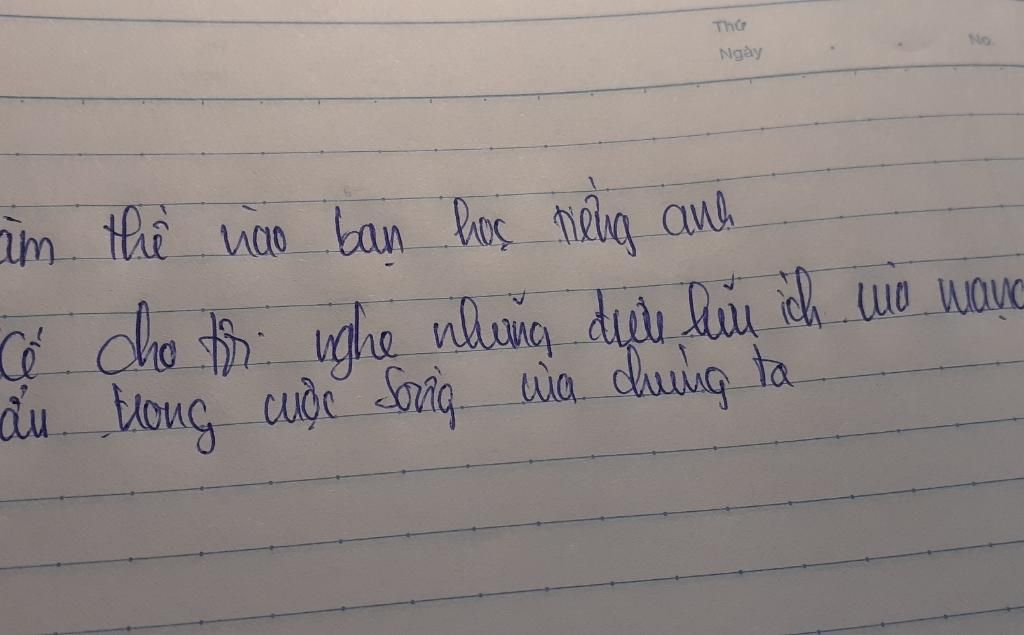 Thứ
Ngày No.
àm thế nào bạn học tiếng anh
cho tôi nghe những điều hữu ích của mạng
trong cuộc sống của chúng ta